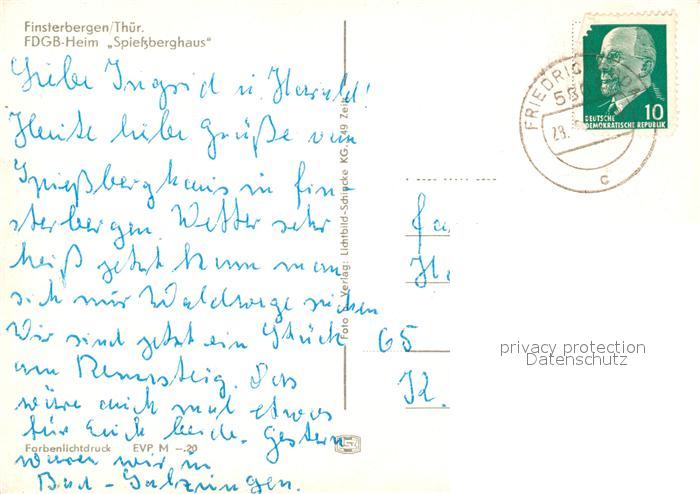 Finsterbergen/Thür.
FDGB-Heim „Spießberghaus"
Liebe Ingrid u. Harald!
Heute liebe Grüße vom
Spießberghaus in Fin-
sterbergen. Wetter sehr
heiß jetzt kann man
sich nur Waldwege suchen
Wir sind jetzt ein Stück
am Rennsteig. Das
wäre auch mal etwas
für Euch beide. Gestern
waren wir in
Bad-Salzungen.
Farbenlichtdruck EVP M –.20
Foto u. Verlag: Lichtbild-Schincke KG, 49 Zeitz
FRIEDRICHRODA
580
28.
c
DEUTSCHE
DEMOKRATISCHE REPUBLIK
10
Fa
65
privacy protection
Datenschutz